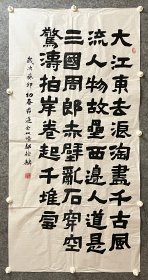 大江東去浪淘盡千古風
流人物故壘西邊人道是
三國周郎赤壁亂石穿空
驚濤拍岸卷起千堆雪
歲次癸卯初春